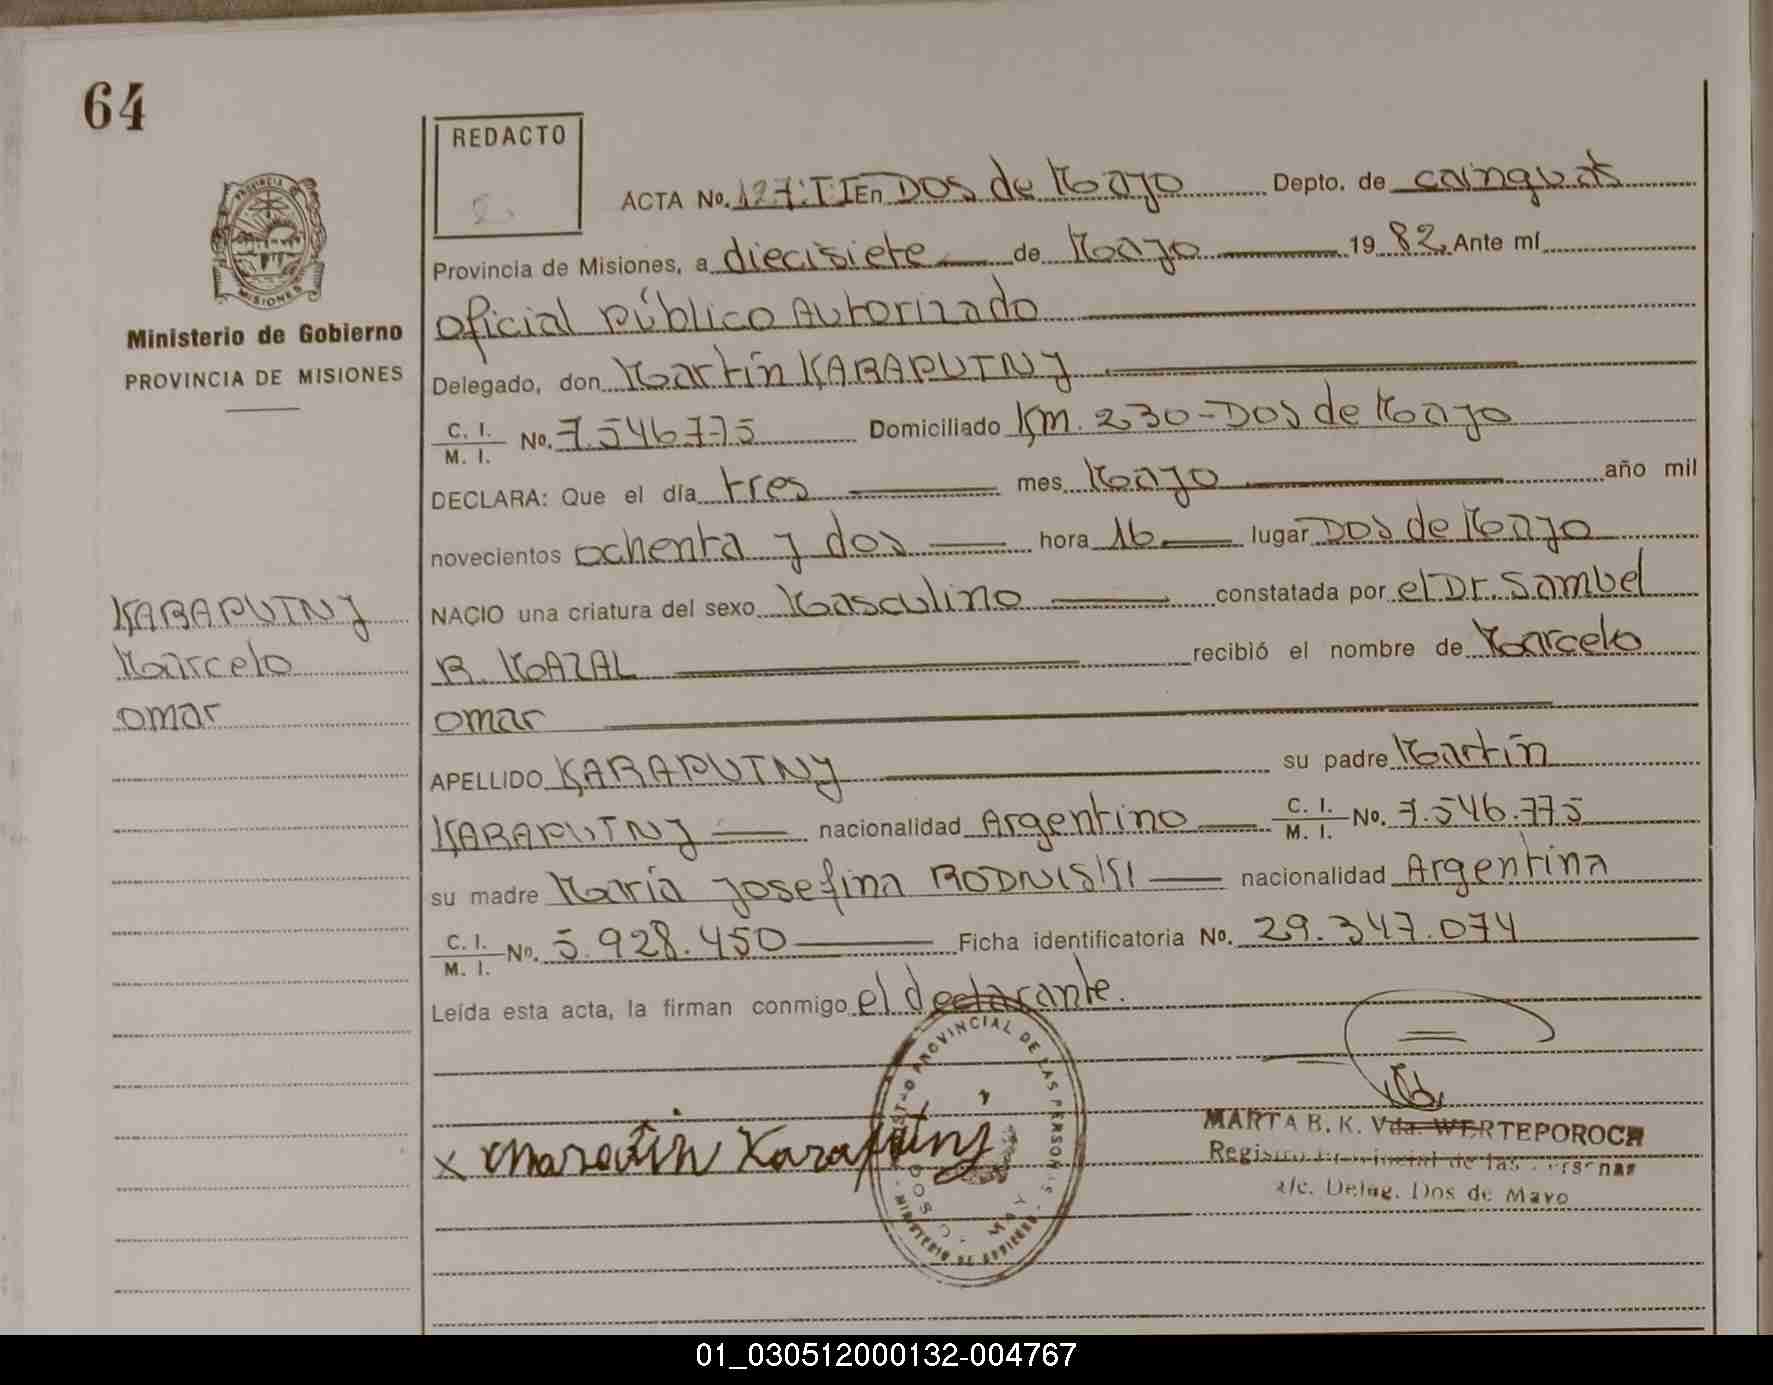 64
REDACTO
ACTA No. 127:TI En Dos de Mayo Depto. de cainguas
Provincia de Misiones, a diecisiete de Mayo 1982 Ante mí
oficial público Autorizado
Ministerio de Gobierno
PROVINCIA DE MISIONES
Delegado, don Martín KARAPUTNY
C. I.
M. I. No. 7.546.775 Domiciliado Km. 230-Dos de Mayo
DECLARA: Que el día tres mes Mayo año mil
novecientos ochenta y dos hora 16 lugar Dos de Mayo
NACIO una criatura del sexo Masculino constatada por el Dr. Samuel
R. MAZAL recibió el nombre de Marcelo
omar
KARAPUTNY
Marcelo
omar
APELLIDO KARAPUTNY su padre Martín
KARAPUTNY nacionalidad Argentino C. I. M. I. No. 7.546.775
su madre María Josefina RODNISKI nacionalidad Argentina
C. I.
M. I. No. 5.928.450 Ficha identificatoria No. 29.347.074
Leída esta acta, la firman conmigo el declarante.
x Martin Karaputny
PROVINCIAL DE LAS PERSONAS
MINISTERIO DE GOBIERNO
MARTA B. K. Vda. WERTEPOROCH
Registro Provincial de las Personas
a/c. Deleg. Dos de Mayo
01_030512000132-004767